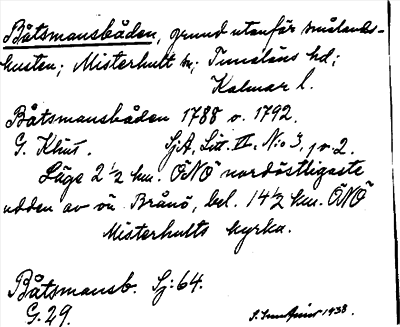 Båtsmansbåden, grund utanför smålands-
kusten; Misterhult sn; Tunaläns hd;
Kalmar l.
Båtsmansbåden 1788 o. 1792.
G. Klint. SjA. Litt. II. N:o 3, 1 o. 2.
Läge 2 1/2 km. ÖNÖ nordöstligaste
udden av ön Brånö, bel. 14 1/2 km. ÖNÖ
Misterhults kyrka.
Båtsmansb. Sj: 64.
G. 29. 1938.